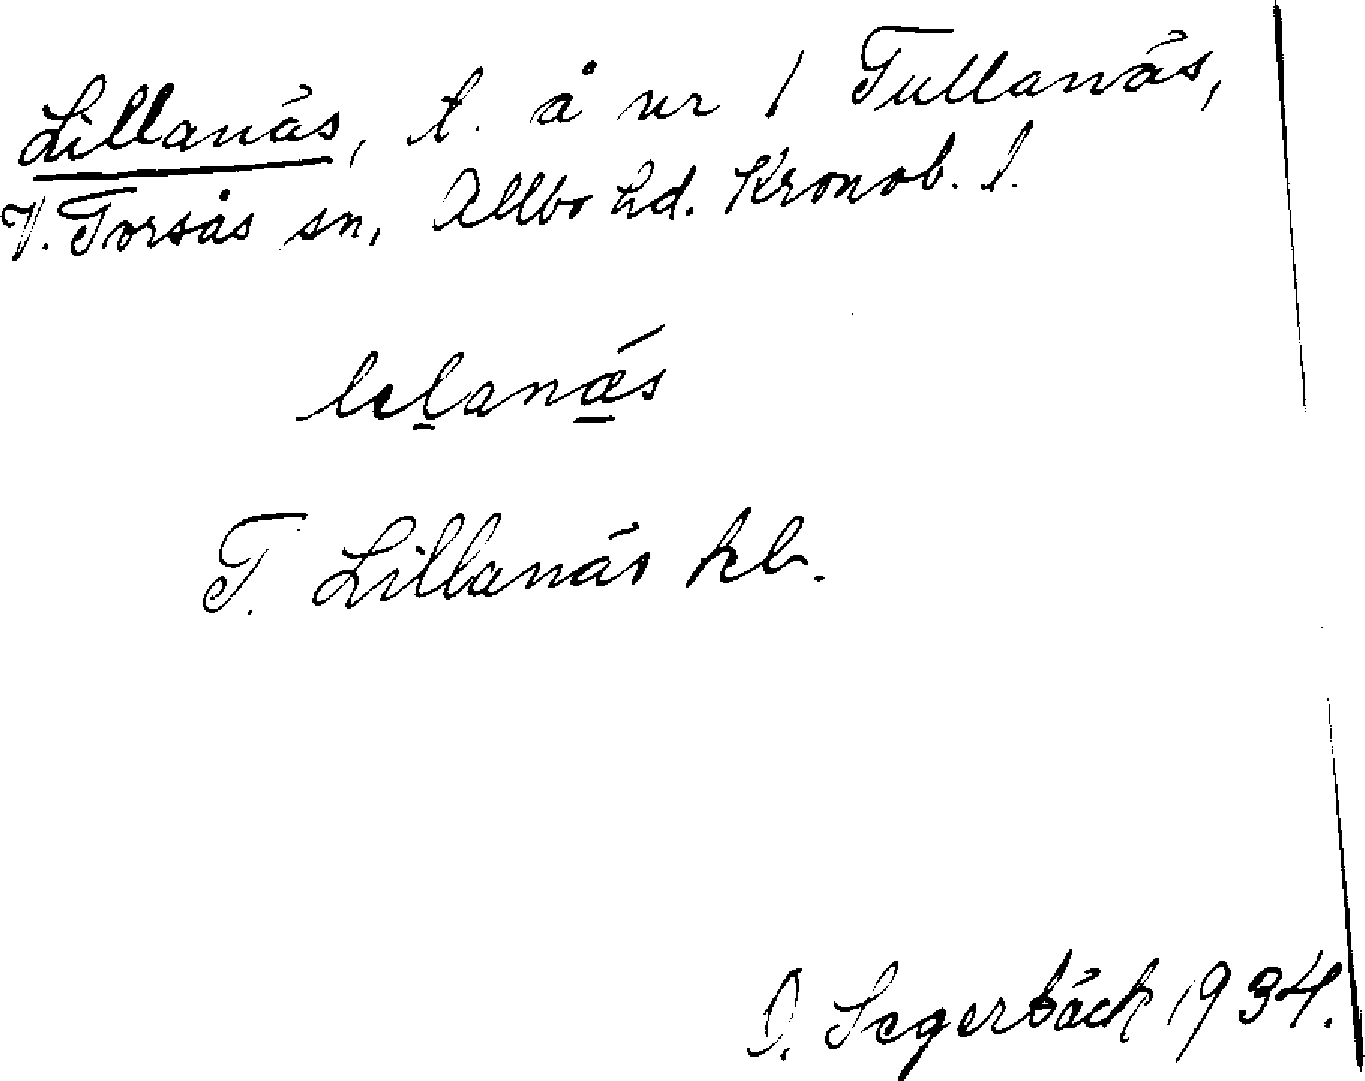 Lillanäs, t. å nr 1 Tullanäs,
V. Torsås sn, Allbo hd. Kronob. l.
lelanǽs
T. Lillanäs kb.
O. Segerbäck 1934.